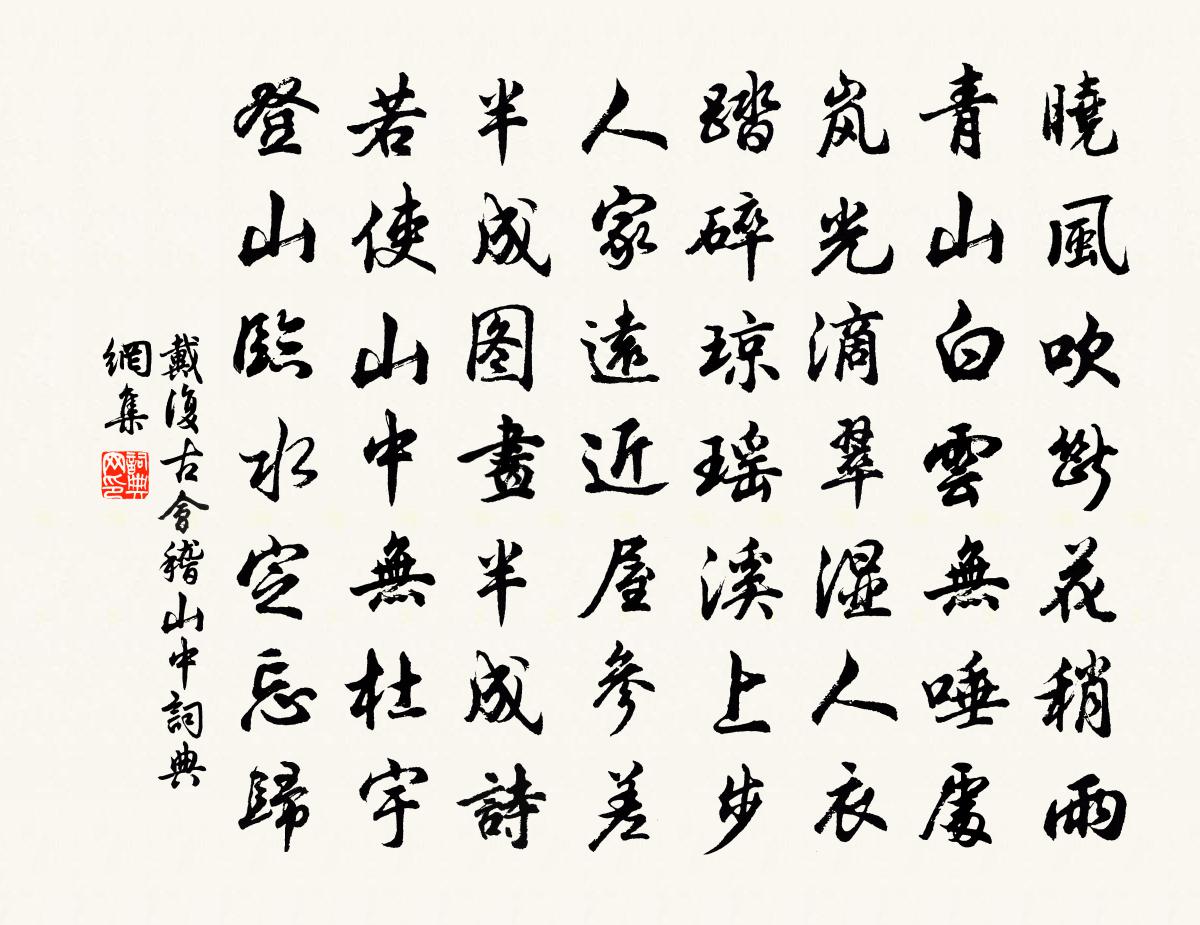 曉風吹斷花稍雨
青山白雲無唾處
岚光滴翠湿人衣
踏碎琼瑶溪上步
人家遠近屋參差
半成图畫半成詩
若使山中無杜宇
登山臨水定忘歸
戴復古會稽山中詞典
網集
詞典网印